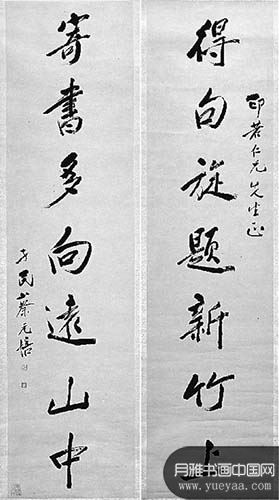 得句旋题新竹上
印若仁兄先生正
寄書多向遠山中
孑民蔡元培
月雅书画中国网
www.yueyaa.com